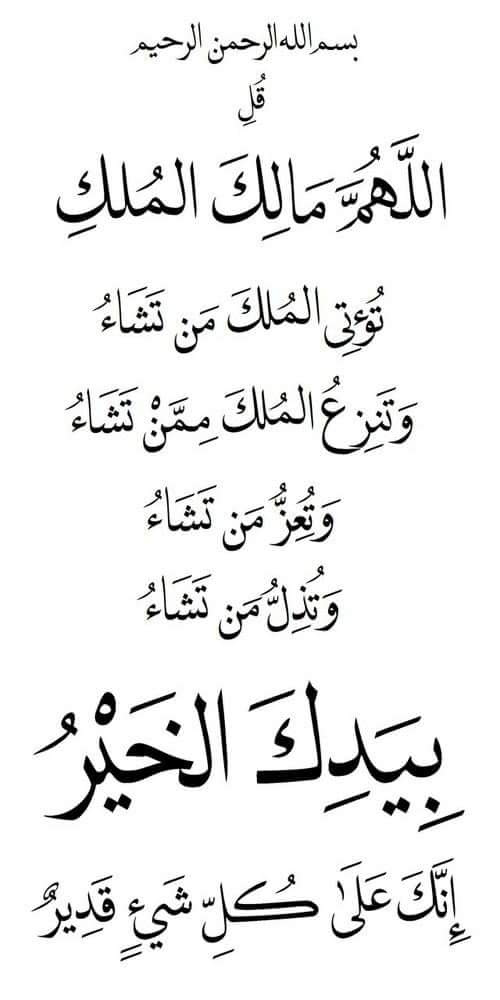 بسم الله الرحمن الرحيم
قُلِ
اللَّهُمَّ مَالِكَ المُلكِ
تُؤتِى المُلكَ مَن تَشَاءُ
وَتَنزِعُ المُلكَ مِمَّنْ تَشَاءُ
وَتُعِزُّ مَن تَشَاءُ
وَتُذِلُّ مَن تَشَاءُ
بِيَدِكَ الخَيْرُ
إِنَّكَ عَلَىٰ كُلِّ شَيءٍ قَدِيرٌ